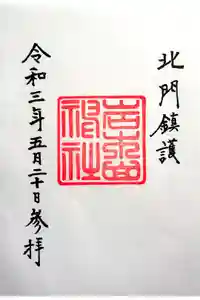 北門鎮護
岩木山
神社
令和三年五月二十日参拝